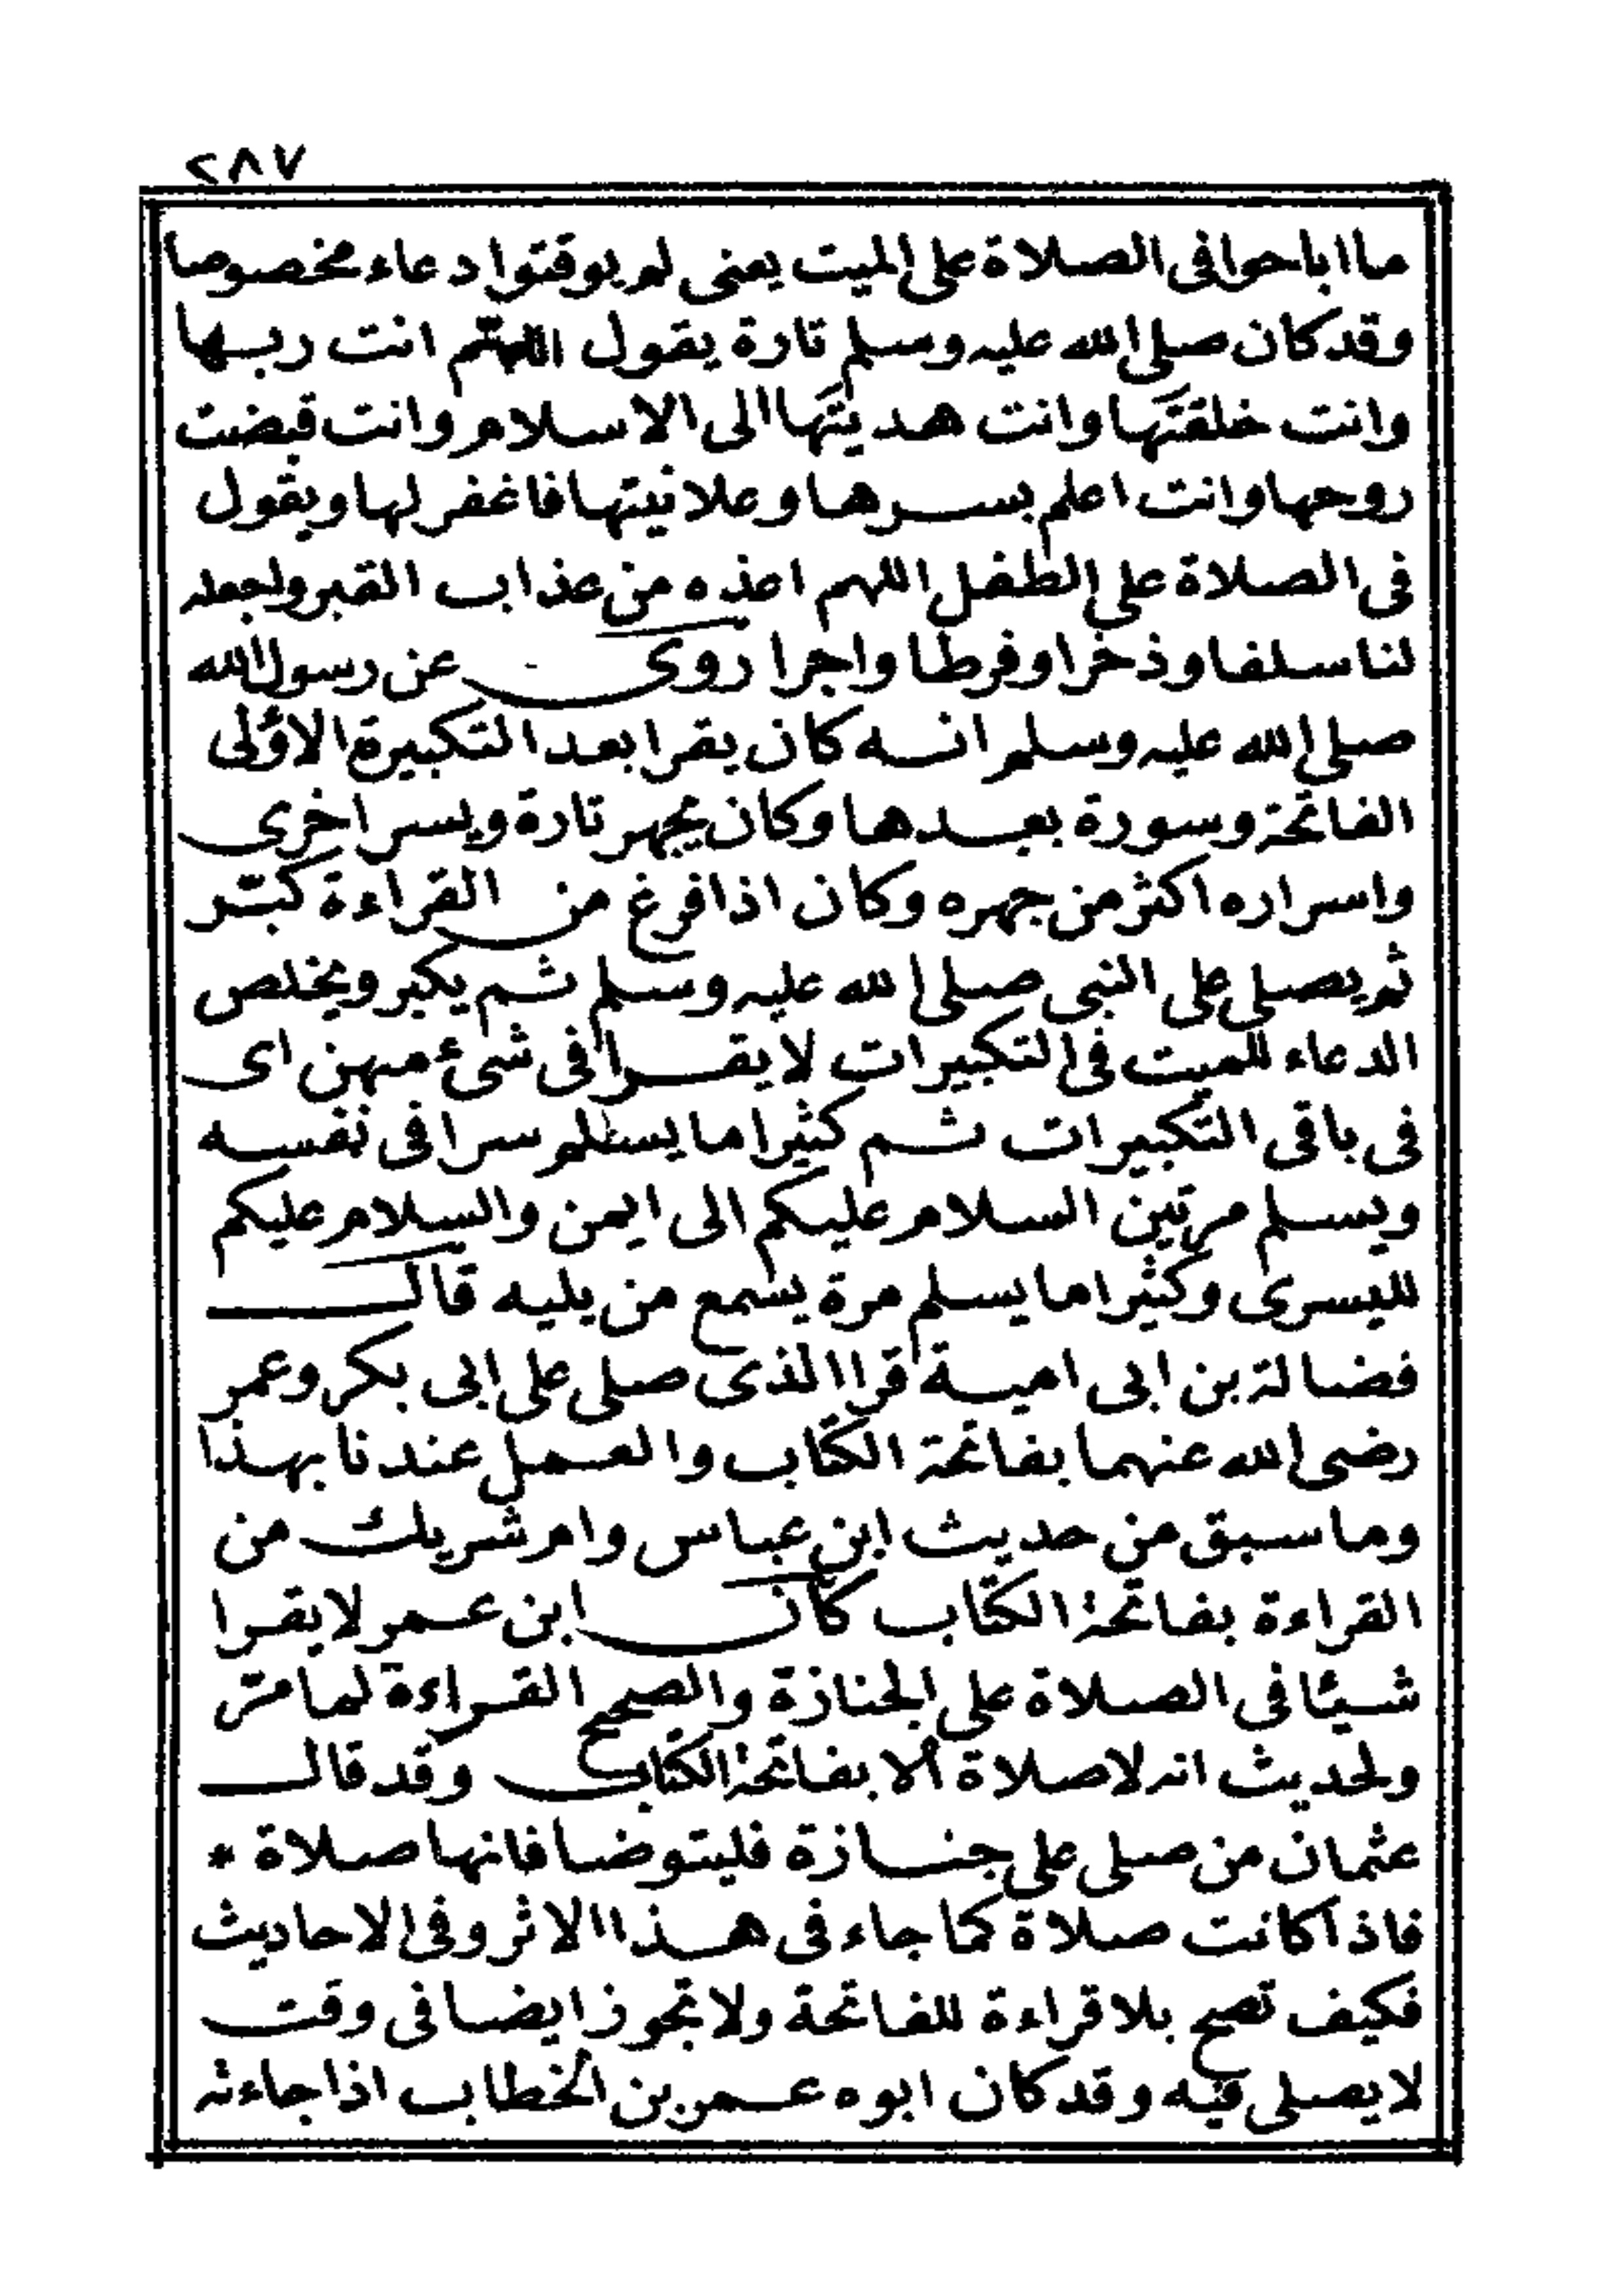 ٢٨٧
ما اباحوا فى الصلاة على الميت يعنى لم يوقتوا دعاء مخصوصا
وقد كان صلى الله عليه وسلم تارة يقول اللهم انت ربها
وانت خلقتها وانت هديتها الى الاسلام وانت قبضت
روحها وانت اعلم بسرها وعلانيتها فاغفر لها ويقول
فى الصلاة على الطفل اللهم اعذه من عذاب القبر واجعله
لنا سلفا وذخرا وفرطا واجرا روى عن رسول الله
صلى الله عليه وسلم انه كان يقرا بعد التكبيرة الاولى
الفاتحة وسورة بعدها وكان يجهر تارة ويسر اخرى
واسراره اكثر من جهره وكان اذا فرغ من القراءة كبّر
ثم يصلى على النبى صلى الله عليه وسلم ثم يكبر ويخلص
الدعاء للميت فى التكبيرات لا يقرا فى شىء منهن اى
فى باقى التكبيرات ثم كثيرا ما يسلم سرا فى نفسه
ويسلم مرتين السلام عليكم الى ايمن والسلام عليكم
لليسرى وكثيرا ما يسلم مرة يسمع من يليه قال
فضالة بن ابى امية قرا الذى صلى على ابى بكر وعمر
رضى الله عنهما بفاتحة الكتاب والعمل عندنا بهذا
وما سبق من حديث ابن عباس وام شريك من
القراءة بفاتحة الكتاب كان ابن عمر لا يقرا
شيئا فى الصلاة على الجنازة والصحيح القراءة لما مرّ
ولحديث انه لا صلاة الا بفاتحة الكتاب وقد قال
عثمان من صلى على جنازة فليتوضا فانها صلاة *
فاذا كانت صلاة كما جاء فى هذا الاثر وفى الاحاديث
فكيف تصح بلا قراءة للفاتحة ولا تجوز ايضا فى وقت
لا يصلى فيه وقد كان ابوه عمر بن الخطاب اذا جاءته